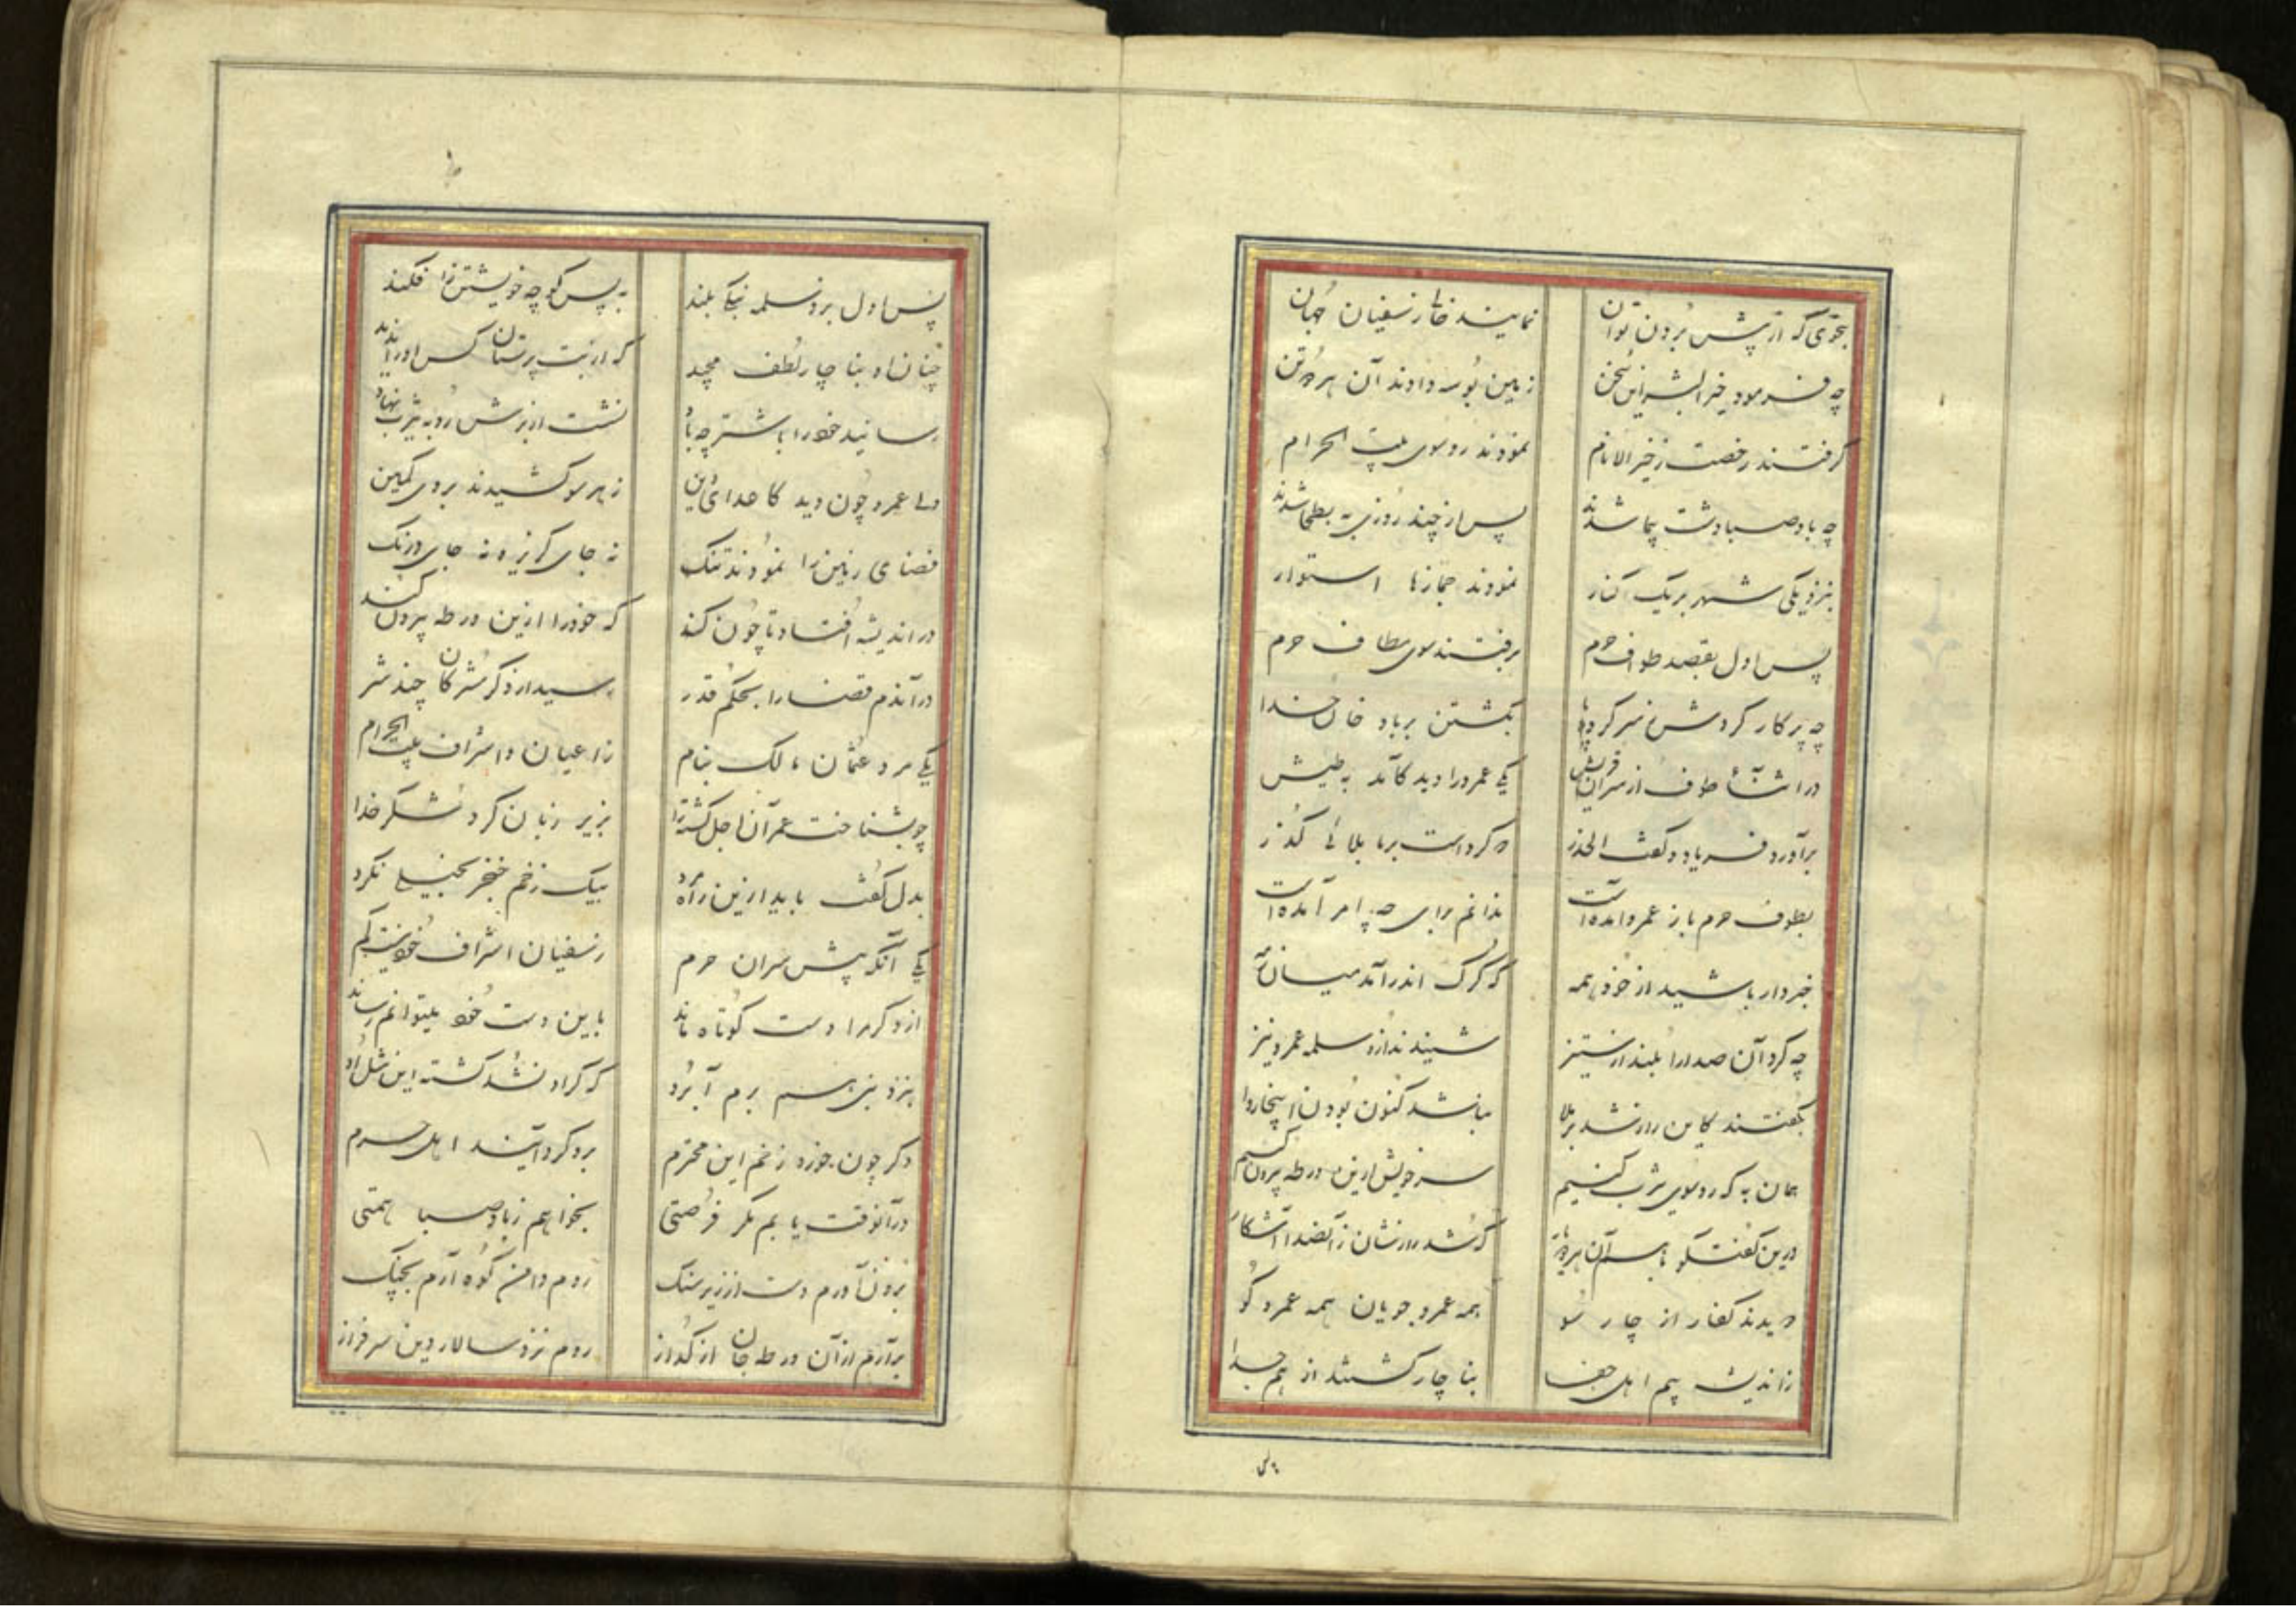 بنوعی که از پیش بردن توان نمایند خالی ز سفیان جهان
چه فرمود خیر البشر این سخن زمین بوسه دادند آن هر دو تن
گرفتند رخصت ز خیر الانام نمودند رو سوی بیت الحرام
چه باد صبا دشت پیما شدند پس از چند روزی به بطحا شدند
بنزدیکی شهر بر یک کنار نمودند جمازها استوار
پس اول بقصد طواف حرم برفتند سوی مطاف حرم
چه پرکار گردش ز سر کرده پا بگشتن بر باد خان خدا
در اثنای طوف از سران قریش یکی عمرو را دید کآمد به طیش
برآورد فریاد و گفت الحذر که کرد است بر ما بلائی گذر
بطوف حرم باز عمرو آمده است ندانم برای چه امر آمده است
خبردار باشید از خود همه که گرگ اندر آمد میان رمه
چه کرد آن صدا را بلند از ستیز شنیدند از او سلمه عمرو نیز
بگفتند کاین راز شد برملا نباشد کنون بودن اینجا روا
همان به که رو سوی یثرب کنیم سر خویش ازین ورطه بیرون کنیم
درین گفتگو با هم آن هر دو یار که شد رازشان ز آن صدا آشکار
دویدند کفار از چار سو همه عمرو جویان همه عمرو گو
ز اندیشه بیم اهل جفا بناچار گشتند از هم جدا
پس اول برو سلمه بنگی بلند به پس کوچه خویشتن را فکند
چنان او بناچار لطف مجید که از بت پرستان کس او را ندید
رسانید خود را باشتر چه باد نشست از برش رو به یثرب نهاد
ولی عمرو چون دید کاعدای دین ز هر سو کشیدند بر وی کمین
فضای زمین را نمودند تنگ نه جای گریز و نه جای درنگ
در اندیشه افتاد تا چون کند که خود را ازین ورطه بیرون کند
در آندم قضا را بحکم قدر رسید از دگر مشرکان چند شر
یکی مرد عثمان مالک بنام ز اعیان و اشراف بیت الحرام
چو بشناخت عمر آن اجل گشته را بزیر زبان کرد شکر خدا
بدل گفت باید ازین راه مرد بیک زخم خنجر بخیلی نکرد
یکی آنکه پیش سران حرم ز سفیان اشراف خود نیست کم
ازو گر مرا دست کوتاه ماند باین دست خود میتوانم رساند
بنزد نبی هم برم آبرو که گر او نشد کشته این مثل او
دگر چون خورد زخم این محترم برو گرد آیند اهل حرم
در آنوقت یابم مگر فرصتی بخواهم ز باد صبا همتی
برون آورم دست از زیر سنگ روم دامن کوه آرم بچنگ
برآرم از آن ورطه جان از گداز روم نزد سالار دین سرفراز